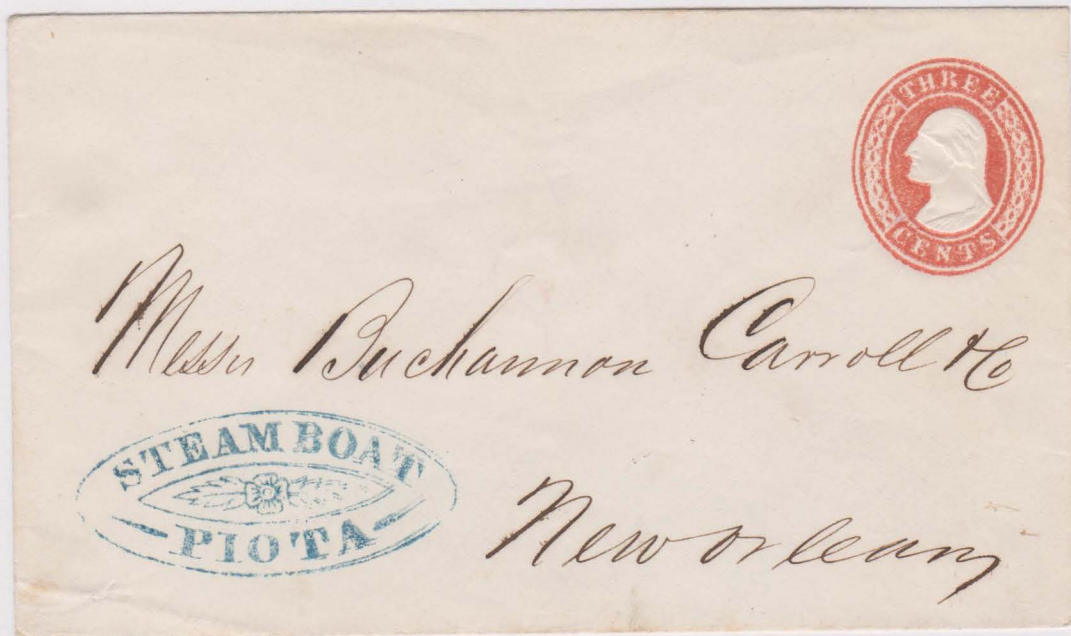 THREE
CENTS
Messrs Buchannon Carroll & Co
STEAM BOAT
PIOTA
New Orleans